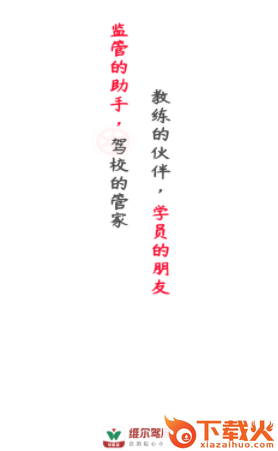 监管的助手，驾校的管家
教练的伙伴，学员的朋友
维尔驾
下载火
xiazaihuo.com